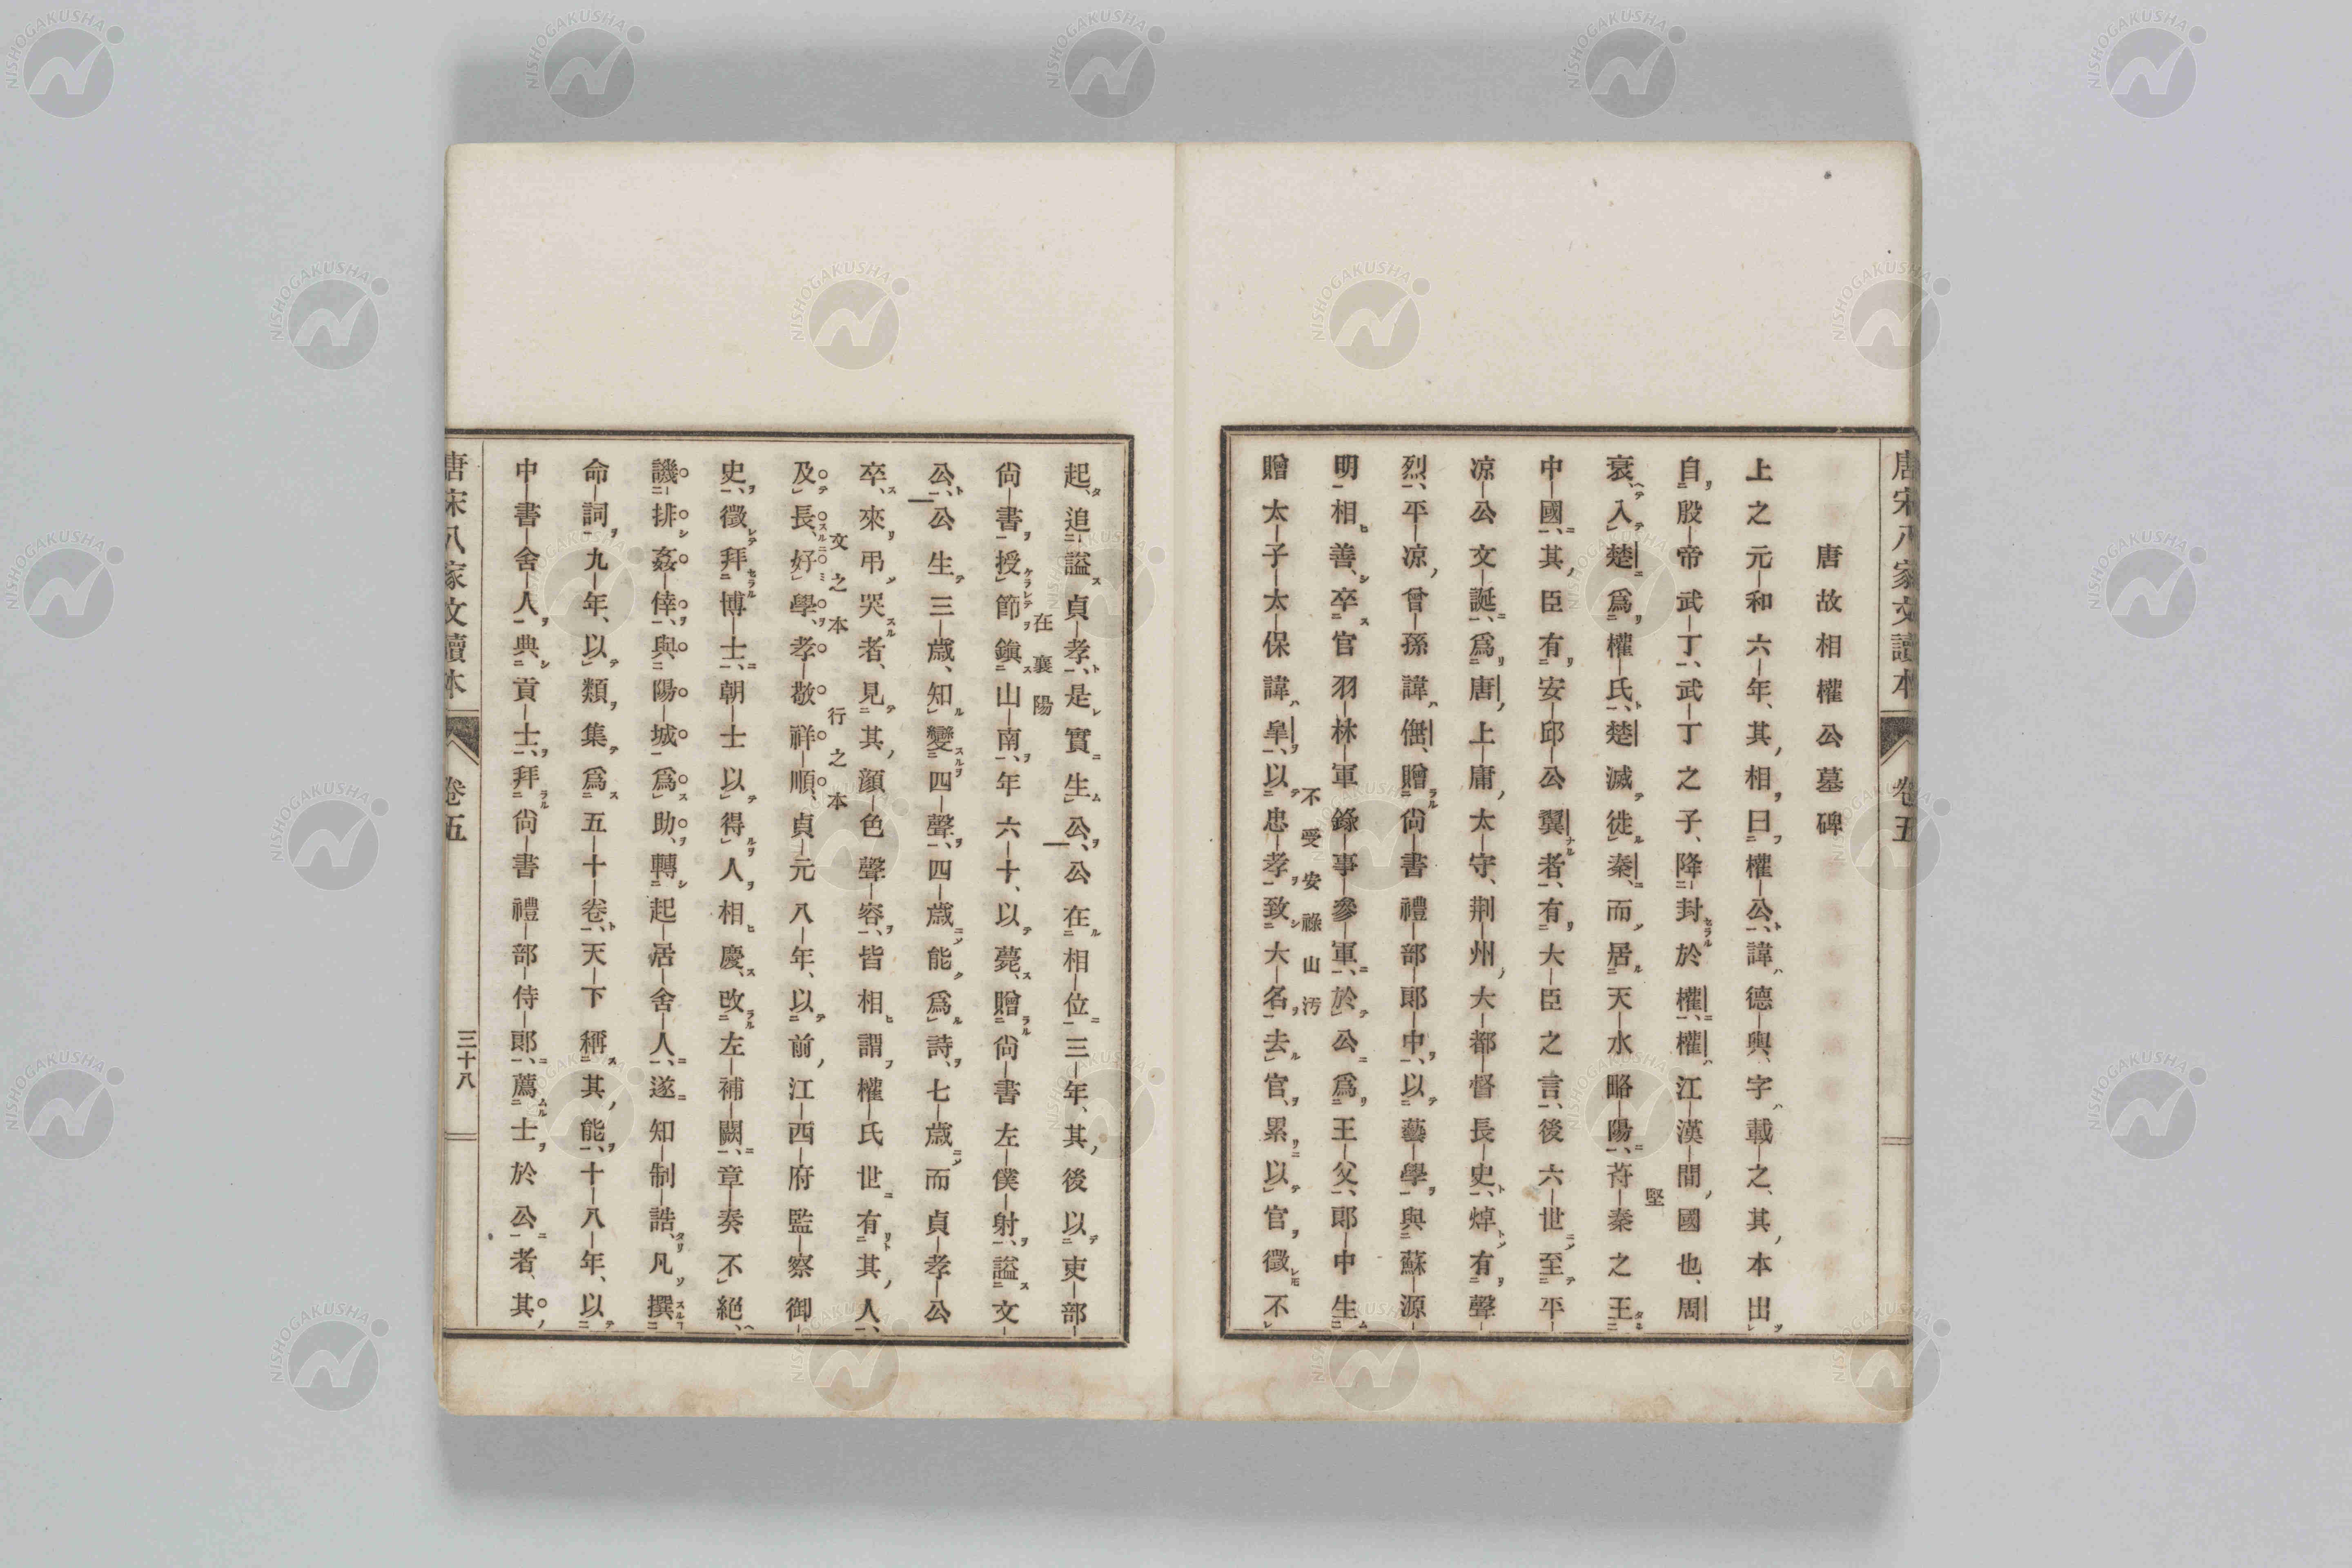 唐宋八家文讀本
卷五
唐故相權公墓碑
上之元和六年、其相曰權公、諱德輿、字載之、其本出
自殷帝武丁、武丁之子、降封於權、權江漢間國也、周
衰、入楚爲權氏、楚滅徙秦、而居天水略陽、苻秦之王
堅
中國、其臣有安邱公翼者、有大臣之言、後六世至平
凉公文誕、爲唐上庸太守、荆州大都督長史、焯有聲
烈、平凉曾孫諱倕、贈尙書禮部郎中、以藝學與蘇源
明相善、卒官羽林軍錄事參軍、於公爲王父、郎中生
不受安祿山汚
贈太子太保諱皐、以忠孝致大名去官、累以官徵不
起、追謚貞孝、是實生公、公在相位三年、其後以吏部
在襄陽
尙書、授節鎭山南、年六十、以薨、贈尙書左僕射、謚文
公、公生三歲、知變四聲、四歲能爲詩、七歲而貞孝公
卒、來弔哭者、見其顏色聲容、皆相謂權氏世有其人、
文之本 行之本
及長、好學、孝敬祥順、貞元八年、以前江西府監察御
史、徵拜博士、朝士以得人相慶、改左補闕、章奏不絕、
譏排姦倖、與陽城爲助、轉起居舍人、遂知制誥、凡撰
命詞九年、以類集爲五十卷、天下稱其能、十八年、以
中書舍人、典貢士、拜尙書禮部侍郎、薦士於公者、其
唐宋八家文讀本
卷五
三十八
NISHOGAKUSHA